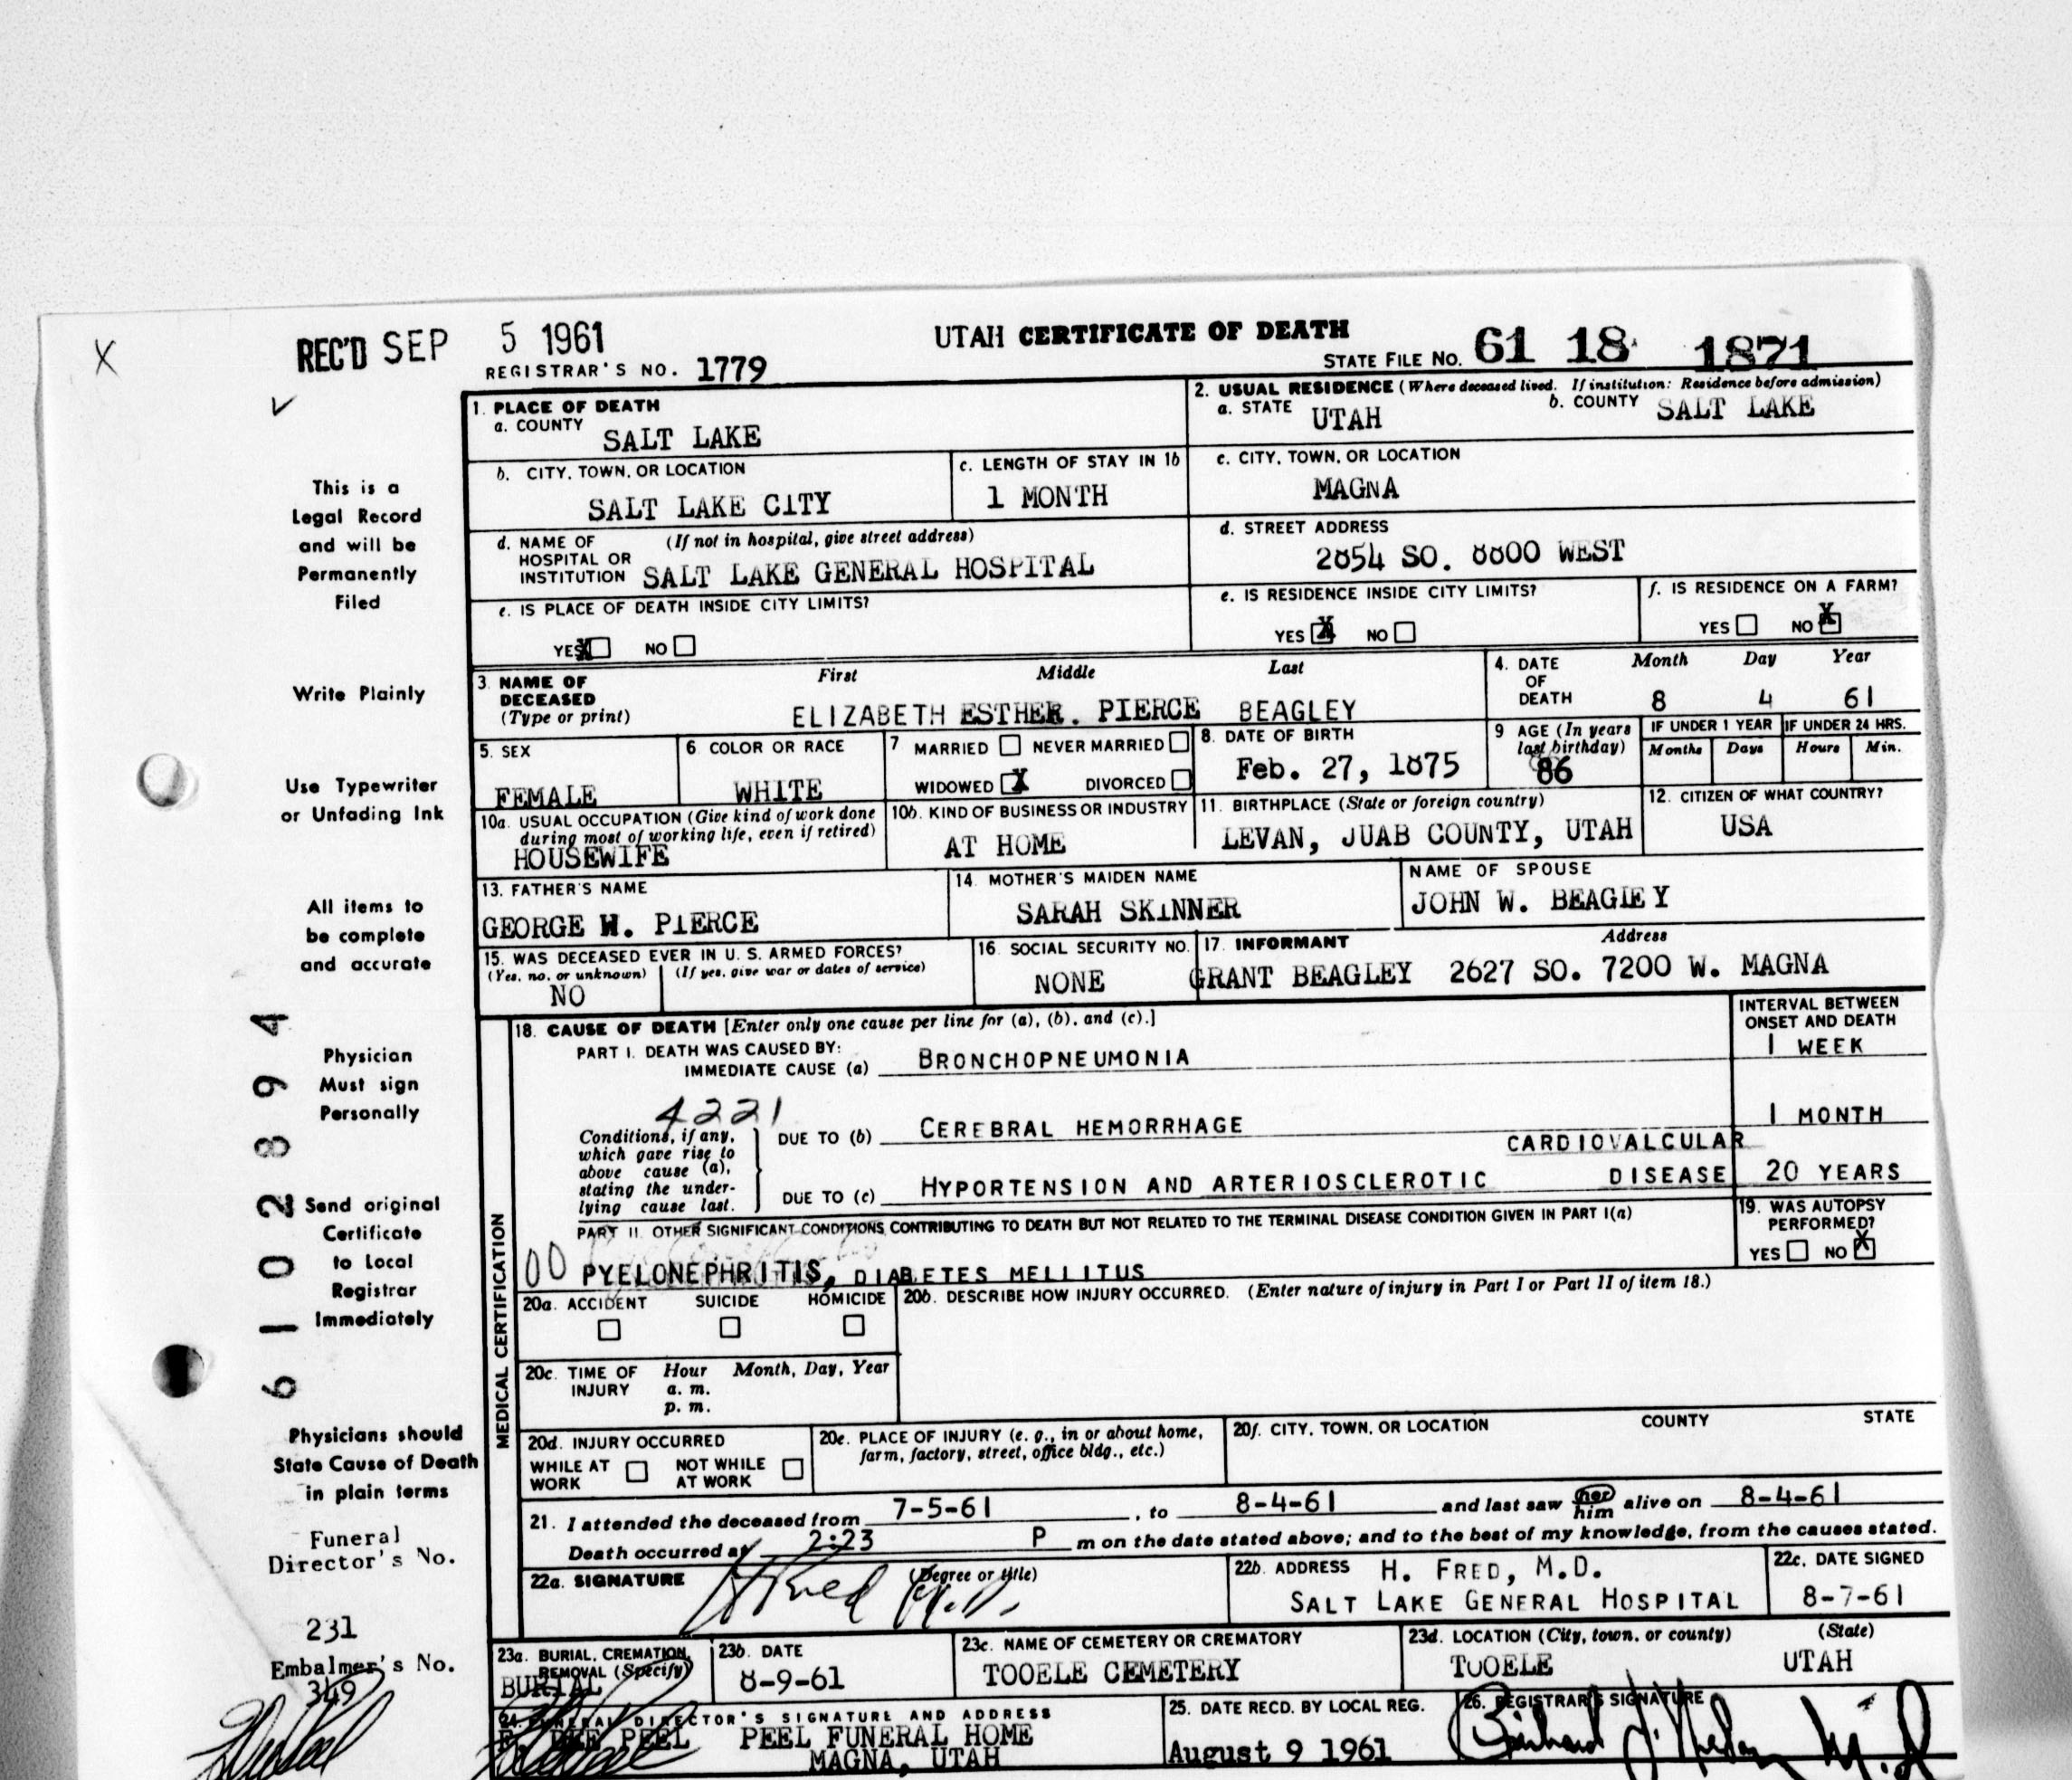 X
REC'D SEP 5 1961
UTAH CERTIFICATE OF DEATH
REGISTRAR'S NO. 1779
STATE FILE NO. 61 18 1871
1. PLACE OF DEATH
a. COUNTY SALT LAKE
2. USUAL RESIDENCE (Where deceased lived. If institution: Residence before admission)
a. STATE UTAH b. COUNTY SALT LAKE
b. CITY, TOWN, OR LOCATION
SALT LAKE CITY
c. LENGTH OF STAY IN 1b
1 MONTH
c. CITY, TOWN, OR LOCATION
MAGNA
d. NAME OF HOSPITAL OR INSTITUTION (If not in hospital, give street address)
SALT LAKE GENERAL HOSPITAL
d. STREET ADDRESS
2854 SO. 8800 WEST
e. IS PLACE OF DEATH INSIDE CITY LIMITS?
YES X NO
e. IS RESIDENCE INSIDE CITY LIMITS?
YES X NO
f. IS RESIDENCE ON A FARM?
YES NO X
3. NAME OF DECEASED (Type or print)
First Middle Last
ELIZABETH ESTHER. PIERCE BEAGLEY
4. DATE OF DEATH
Month Day Year
8 4 61
5. SEX
FEMALE
6 COLOR OR RACE
WHITE
7 MARRIED NEVER MARRIED
WIDOWED X DIVORCED
8. DATE OF BIRTH
Feb. 27, 1875
9 AGE (In years last birthday)
86
IF UNDER 1 YEAR
Months Days
IF UNDER 24 HRS.
Hours Min.
10a. USUAL OCCUPATION (Give kind of work done during most of working life, even if retired)
HOUSEWIFE
10b. KIND OF BUSINESS OR INDUSTRY
AT HOME
11. BIRTHPLACE (State or foreign country)
LEVAN, JUAB COUNTY, UTAH
12. CITIZEN OF WHAT COUNTRY?
USA
13. FATHER'S NAME
GEORGE W. PIERCE
14. MOTHER'S MAIDEN NAME
SARAH SKINNER
NAME OF SPOUSE
JOHN W. BEAGLEY
15. WAS DECEASED EVER IN U. S. ARMED FORCES?
(Yes, no, or unknown) (If yes, give war or dates of service)
NO
16. SOCIAL SECURITY NO.
NONE
17. INFORMANT Address
GRANT BEAGLEY 2627 SO. 7200 W. MAGNA
MEDICAL CERTIFICATION
18. CAUSE OF DEATH [Enter only one cause per line for (a), (b), and (c).]
INTERVAL BETWEEN ONSET AND DEATH
PART I. DEATH WAS CAUSED BY:
IMMEDIATE CAUSE (a) BRONCHOPNEUMONIA
1 WEEK
4221
Conditions, if any, which gave rise to above cause (a), stating the underlying cause last.
DUE TO (b) CEREBRAL HEMORRHAGE
1 MONTH
DUE TO (c) HYPORTENSION AND ARTERIOSCLEROTIC CARDIOVALCULAR DISEASE
20 YEARS
PART II. OTHER SIGNIFICANT CONDITIONS CONTRIBUTING TO DEATH BUT NOT RELATED TO THE TERMINAL DISEASE CONDITION GIVEN IN PART I(a)
00 PYELONEPHRITIS, DIABETES MELLITUS
19. WAS AUTOPSY PERFORMED?
YES NO X
20a. ACCIDENT SUICIDE HOMICIDE
20b. DESCRIBE HOW INJURY OCCURRED. (Enter nature of injury in Part I or Part II of item 18.)
20c. TIME OF INJURY Hour Month, Day, Year
a. m.
p. m.
20d. INJURY OCCURRED
WHILE AT WORK NOT WHILE AT WORK
20e. PLACE OF INJURY (e. g., in or about home, farm, factory, street, office bldg., etc.)
20f. CITY, TOWN, OR LOCATION COUNTY STATE
21. I attended the deceased from 7-5-61, to 8-4-61 and last saw her him alive on 8-4-61
Death occurred at 2:23 P m on the date stated above; and to the best of my knowledge, from the causes stated.
22a. SIGNATURE (Degree or title)
H Fred M.D.
22b. ADDRESS H. FRED, M.D.
SALT LAKE GENERAL HOSPITAL
22c. DATE SIGNED
8-7-61
23a. BURIAL, CREMATION, REMOVAL (Specify)
BURIAL
23b. DATE
8-9-61
23c. NAME OF CEMETERY OR CREMATORY
TOOELE CEMETERY
23d. LOCATION (City, town, or county) (State)
TOOELE UTAH
24. FUNERAL DIRECTOR'S SIGNATURE AND ADDRESS
PEEL PEEL FUNERAL HOME
MAGNA, UTAH
25. DATE RECD. BY LOCAL REG.
August 9 1961
26. REGISTRAR'S SIGNATURE
M.D
This is a
Legal Record
and will be
Permanently
Filed
Write Plainly
Use Typewriter
or Unfading Ink
All items to
be complete
and accurate
Physician
Must sign
Personally
Send original
Certificate
to Local
Registrar
Immediately
Physicians should
State Cause of Death
in plain terms
Funeral
Director's No.
231
Embalmer's No.
349
6102894